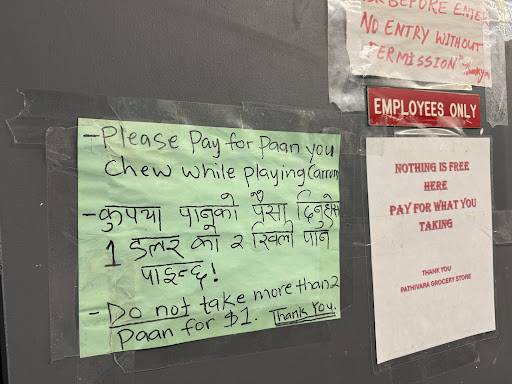 ASK BEFORE ENTER
NO ENTRY WITHOUT
PERMISSION"
Thankyou
EMPLOYEES ONLY
- Please Pay for Paan you
chew while playing Carrom
- कुपया पानको पैसा दिनुहोस
1 डलर को २ खिली पान
पाइन्छ!
- Do not take more than 2
Paan for $1. Thank You.
NOTHING IS FREE
HERE
PAY FOR WHAT YOU
TAKING
THANK YOU
PATHIVARA GROCERY STORE